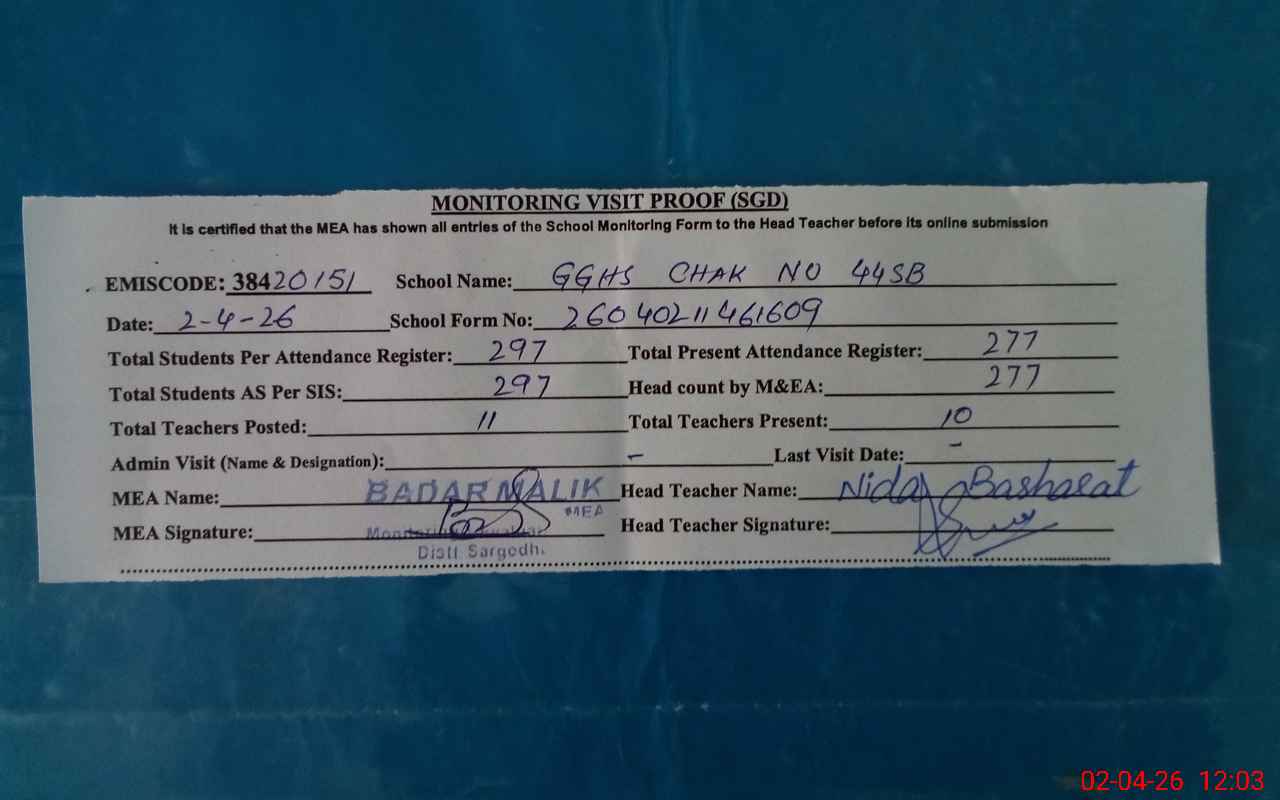 MONITORING VISIT PROOF (SGD)
It is certified that the MEA has shown all entries of the School Monitoring Form to the Head Teacher before its online submission
EMISCODE: 38420151 School Name: GGHS CHAK NO 44SB
Date: 2-4-26 School Form No: 26040211461609
Total Students Per Attendance Register: 297 Total Present Attendance Register: 277
Total Students AS Per SIS: 297 Head count by M&EA: 277
Total Teachers Posted: 11 Total Teachers Present: 10
Admin Visit (Name & Designation): - Last Visit Date: -
MEA Name: BADAR MALIK Head Teacher Name: Nida Basharat
MEA
MEA Signature: Head Teacher Signature:
Distt Sargodh.
02-04-26 12:03